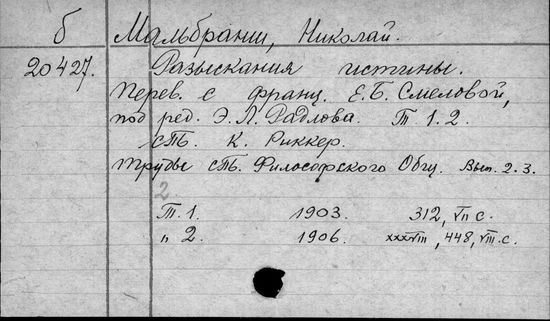 б Мальбранш, Николай.
20427. Разыскания истины.
Перев. с франц. Е.Б. Смеловой,
под ред. Э.Л. Радлова. Т. 1.2.
СПб. К. Риккер.
Труды СПб. Философского Общ. Вып. 2.3.
2
Т. 1. 1903. 312, VII с.
" 2. 1906. XXXVIII, 448, VIII с.